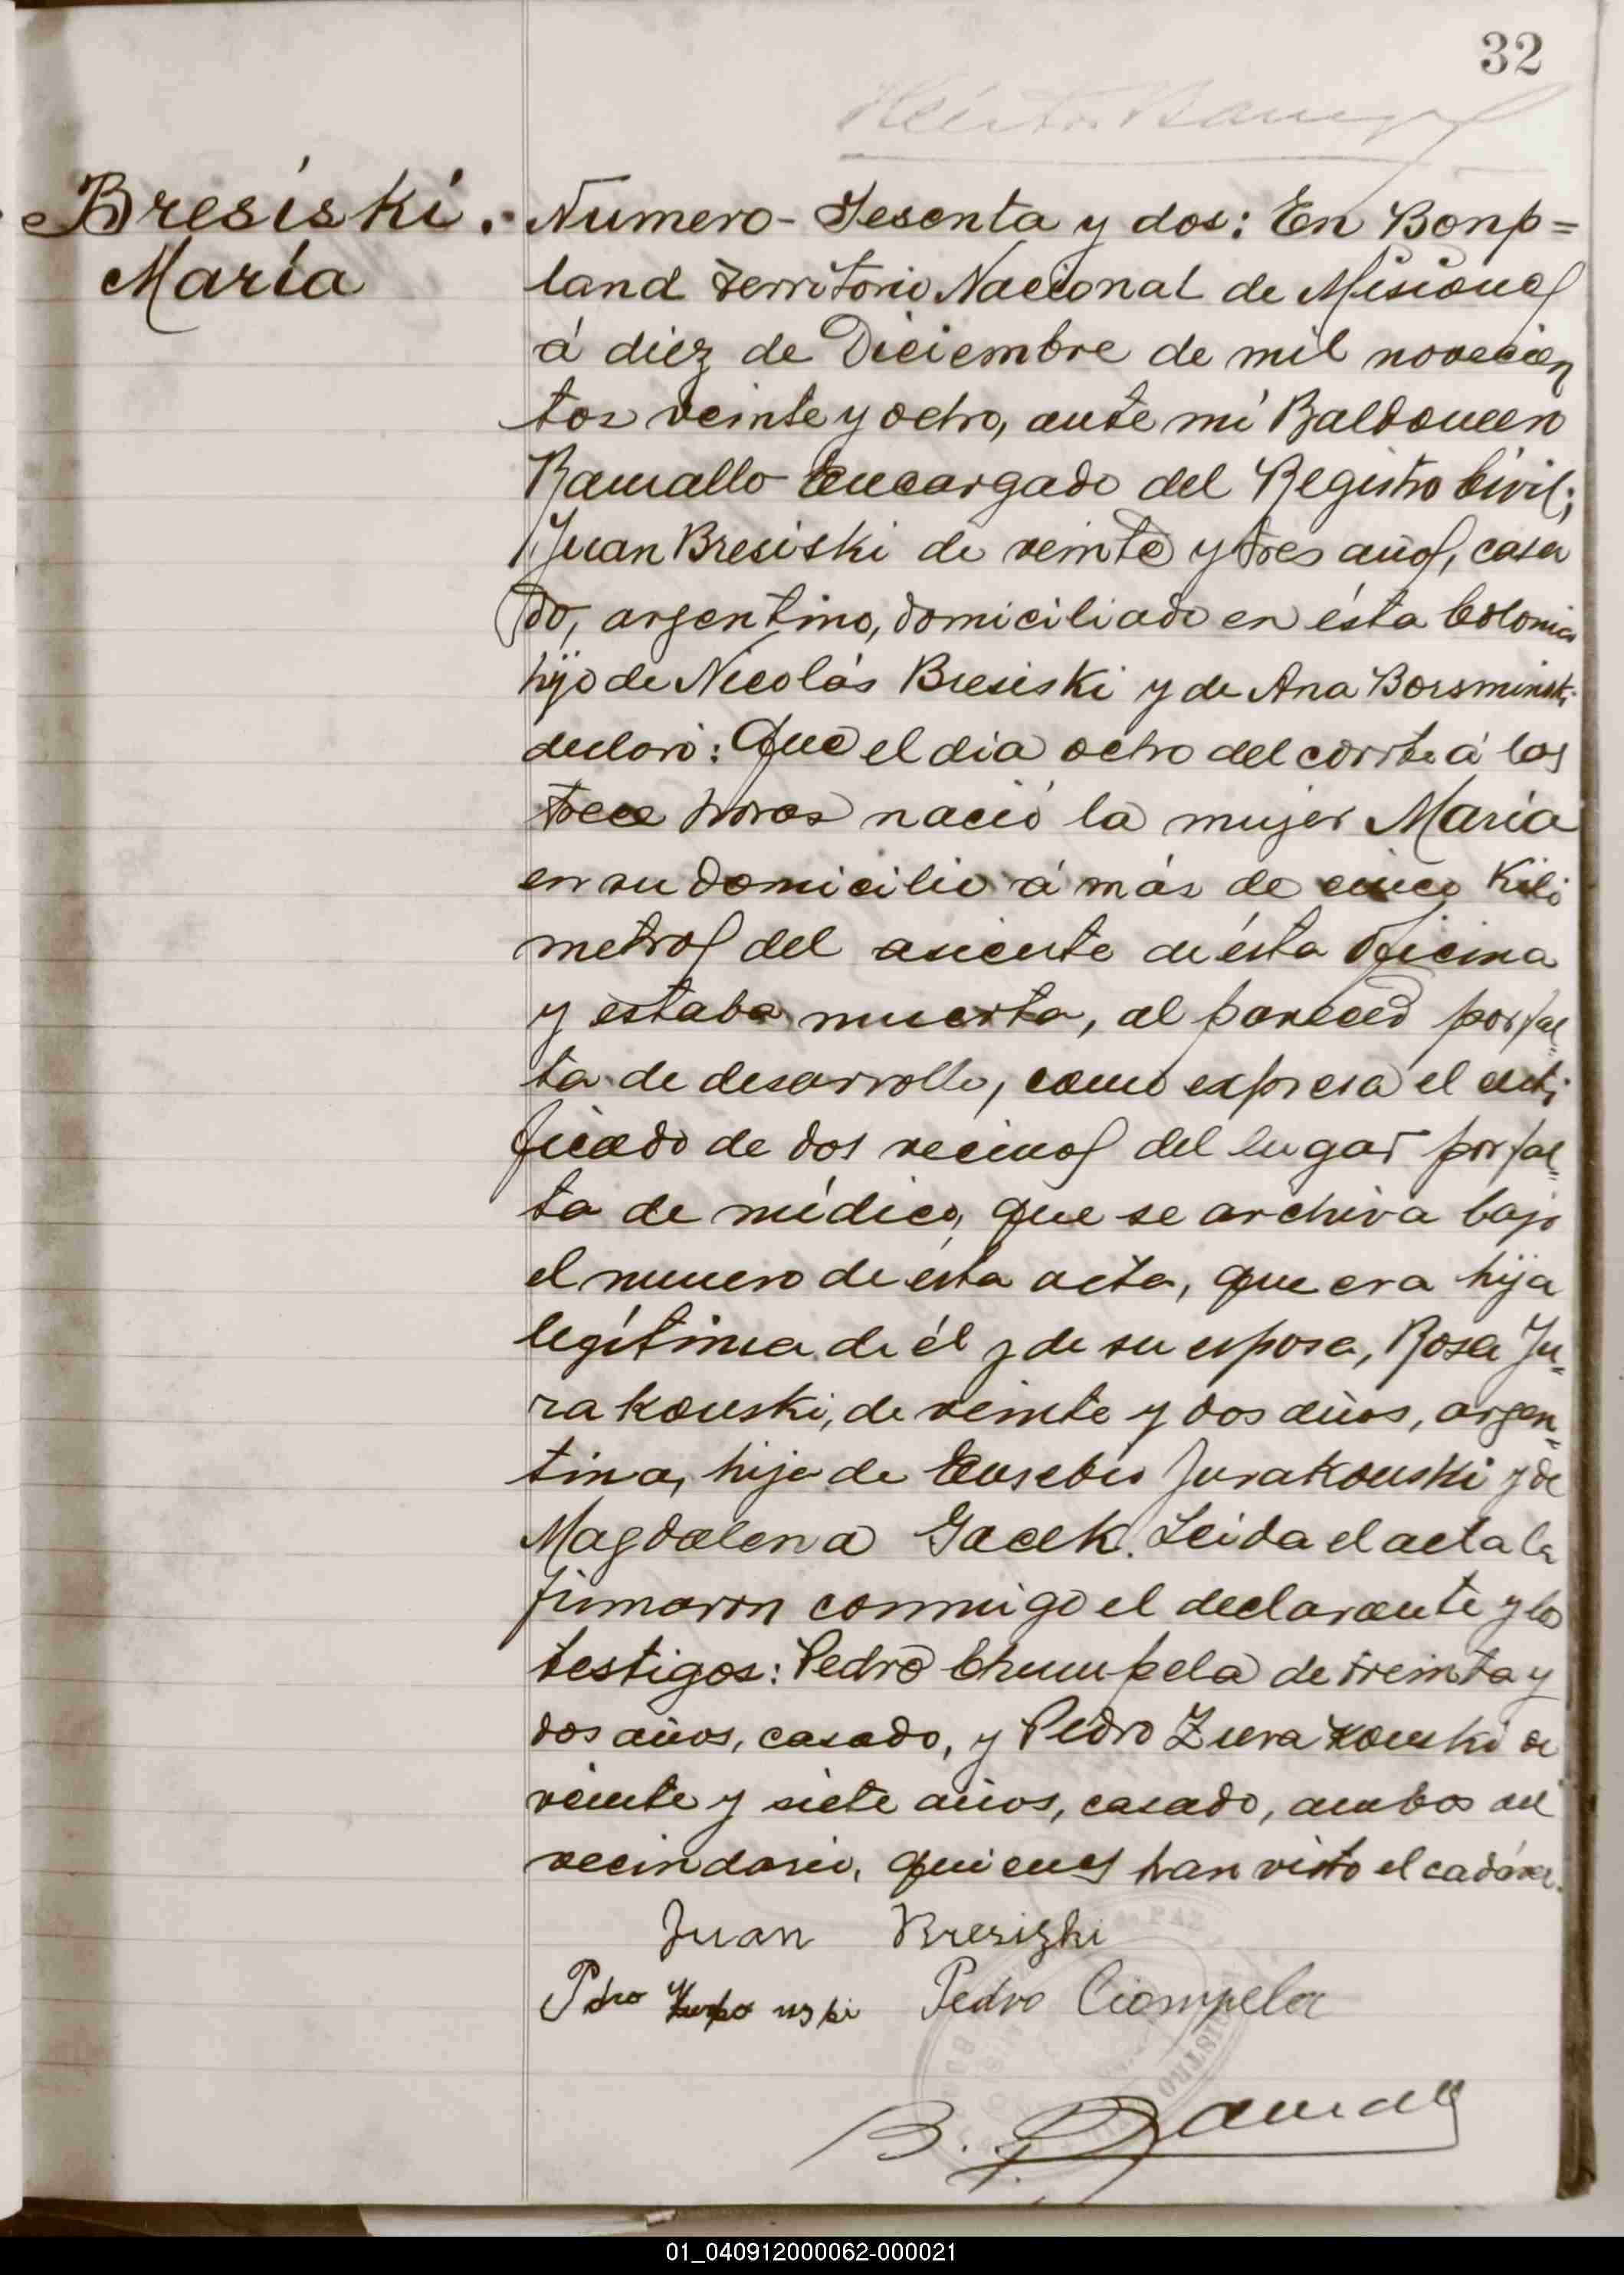 32
Bresiski.
María
Numero- Sesenta y dos: En Bonp=
land Territorio Nacional de Misiones
á diez de Diciembre de mil novecien
tos veinte y ocho, ante mi Baldomero
Ramallo Encargado del Registro Civil;
Juan Bresiski de veinte y tres años, casa
do, argentino, domiciliado en ésta Colonia
hijo de Nicolás Bresiski y de Ana Borsminski
declaró: Que el dia ocho del corrte á las
trece horas nació la mujer María
en su domicilio á más de cinco Kiló
metros del asiento de ésta Oficina
y estaba muerta, al parecer por fal=
ta de desarrollo, como expresa el certi
ficado de dos vecinos del lugar por fal=
ta de médico, que se archiva bajo
el numero de ésta acta, que era hija
legítima de él y de su esposa, Rosa Ju=
rakouski, de veinte y dos años, argen=
tina, hija de Eusebio Jurakouski y de
Magdalena Gacek. Leida el acta la
firmaron conmigo el declarante y los
testigos: Pedro Chumpela de treinta y
dos años, casado, y Pedro Zurakouski de
veinte y siete años, casado, ambos del
vecindario, quienes han visto el cadáver.
Juan Bresizki
Pedro Ciompela
B. Ramallo
01_040912000062-000021